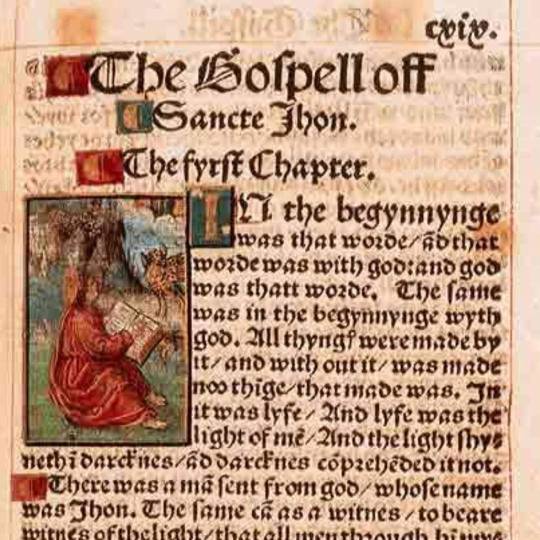 cxix.
The Gospell off
Sancte Jhon.
The fyrst Chapter.
IN the begynnynge
was that worde/ ãd that
worde was with god: and god
was thatt worde. The same
was in the begynnynge wyth
god. All thyngꝭ were made by
it/ and with out it/ was made
noo thĩge/ that made was. In
it was lyfe/ And lyfe was the
light of mẽ/ And the light shy⸗
neth ĩ darcknes/ ãd darcknes cõprehẽded it not.
There was a mã sent from god/ whose name
was Jhon. The same cã as a witnes/ to beare
witnes of the light/ that all men through